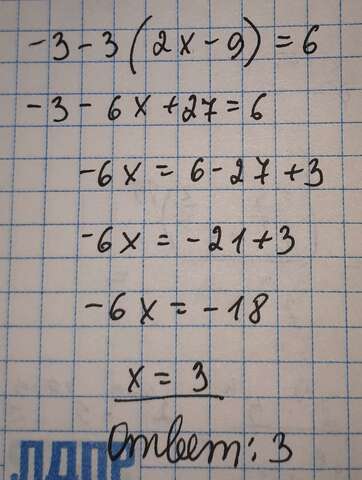 -3-3(2x-9)=6
-3-6x+27=6
-6x=6-27+3
-6x=-21+3
-6x=-18
x=3
Ответ: 3
ЛДПР